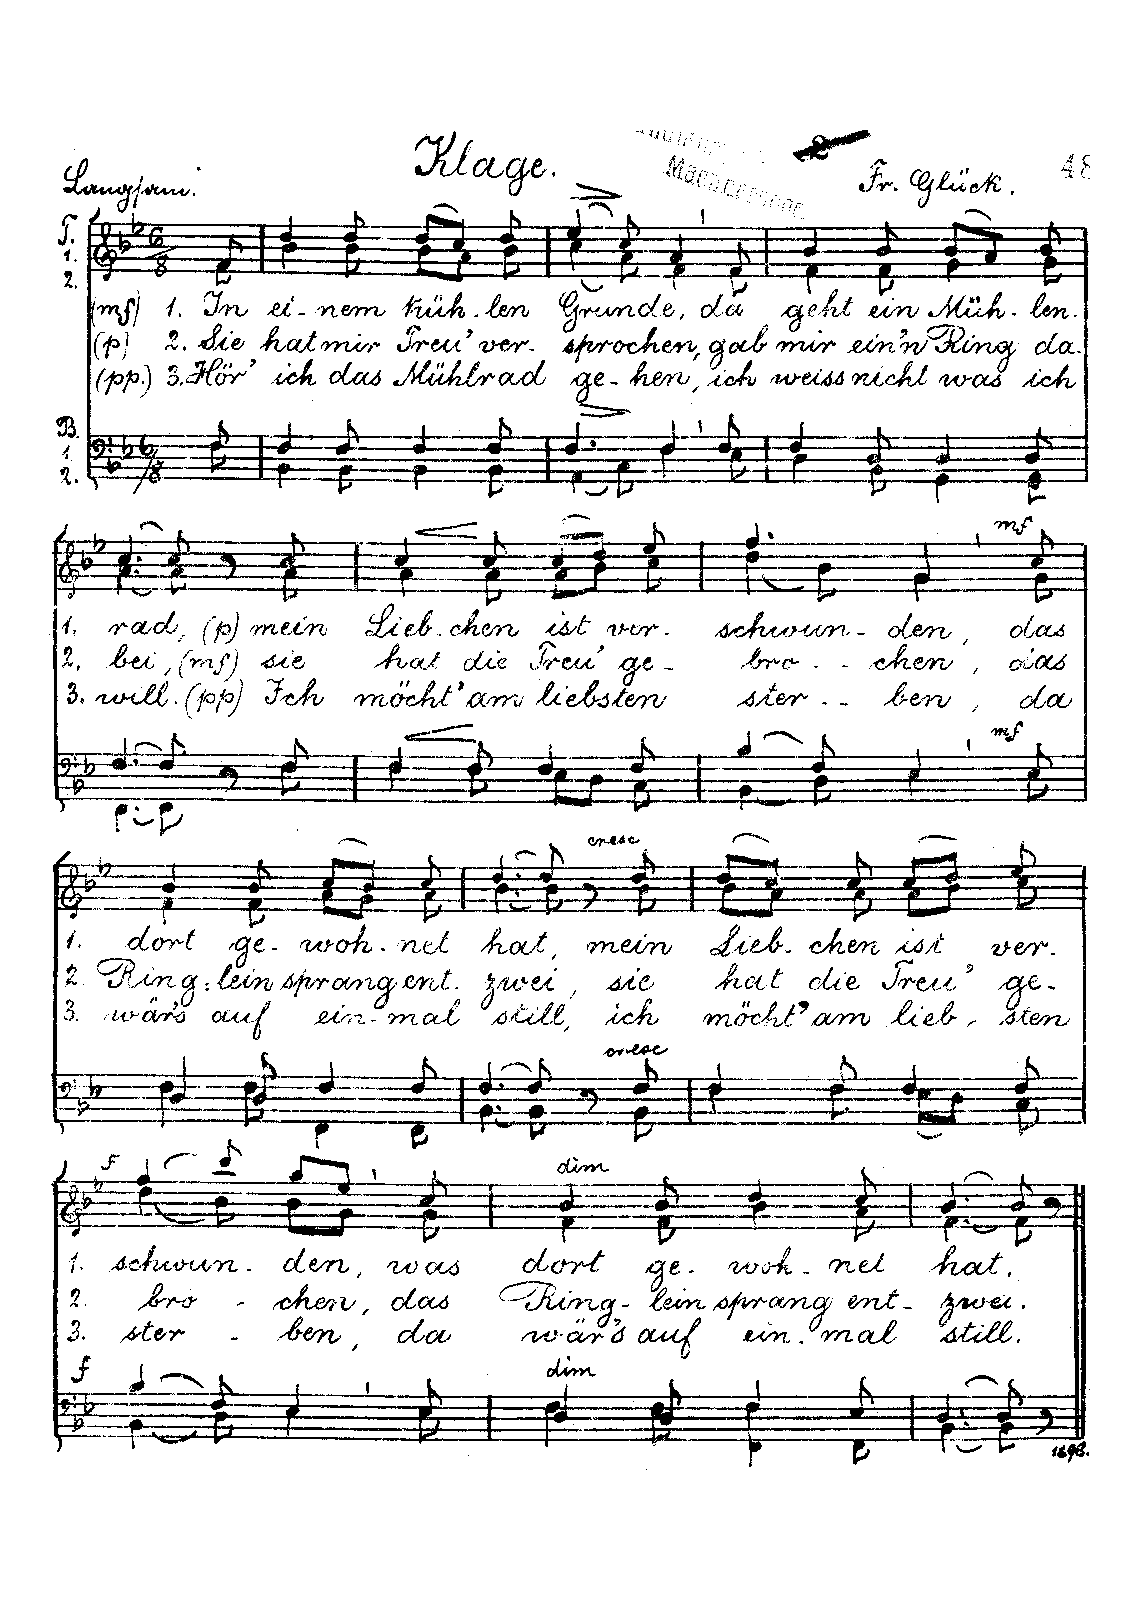 Klage.
Langsam.
Fr. Glück.
48
T.
1.
2.
(mf) 1. In ei-nem küh-len Grunde, da geht ein Müh-len-
(p) 2. Sie hat mir Treu' ver- sprochen, gab mir ein'n Ring da-
(pp.) 3. Hör' ich das Mühlrad ge-hen, ich weiss nicht was ich
B.
1.
2.
mf
1. rad, (p) mein Lieb-chen ist ver- schwun-den, das
2. bei, (mf) sie hat die Treu' ge- bro--chen, das
3. will. (pp) Ich möcht' am liebsten ster--ben, da
mf
cresc
1. dort ge-woh-net hat, mein Lieb-chen ist ver-
2 Ring-lein sprang ent-zwei, sie hat die Treu' ge-
3. wär's auf ein-mal still, ich möcht' am lieb-sten
cresc
f
dim
1. schwun-den, was dort ge-woh-net hat.
2. bro-chen, das Ring-lein sprang ent-zwei.
3. ster-ben, da wär's auf ein-mal still.
f
dim